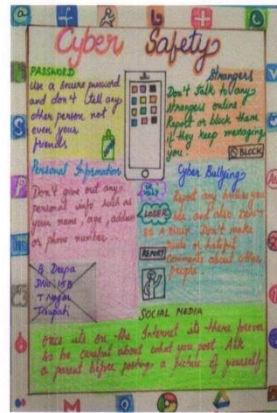 Cyber Safety
PASSWORD
Use a secure password
and don't tell any
other person not
even your
friends
Strangers
Don't talk to any
strangers online
Report or block them
if they keep messaging
you.
BLOCK
Personal Information
Don't give out any
personal info such as
your name, age, address
or phone number.
Cyber Bullying
Report any bullies you
see and also don't
be a bully. Don't make
rude or hateful
comments about other
people.
LOSER
REPORT
B. Deepa
DNo: 15B
T Nagar
Tirupati
SOCIAL MEDIA
Once its on the Internet its there forever
so be careful about what you post Ask
a parent before posting a picture of yourself